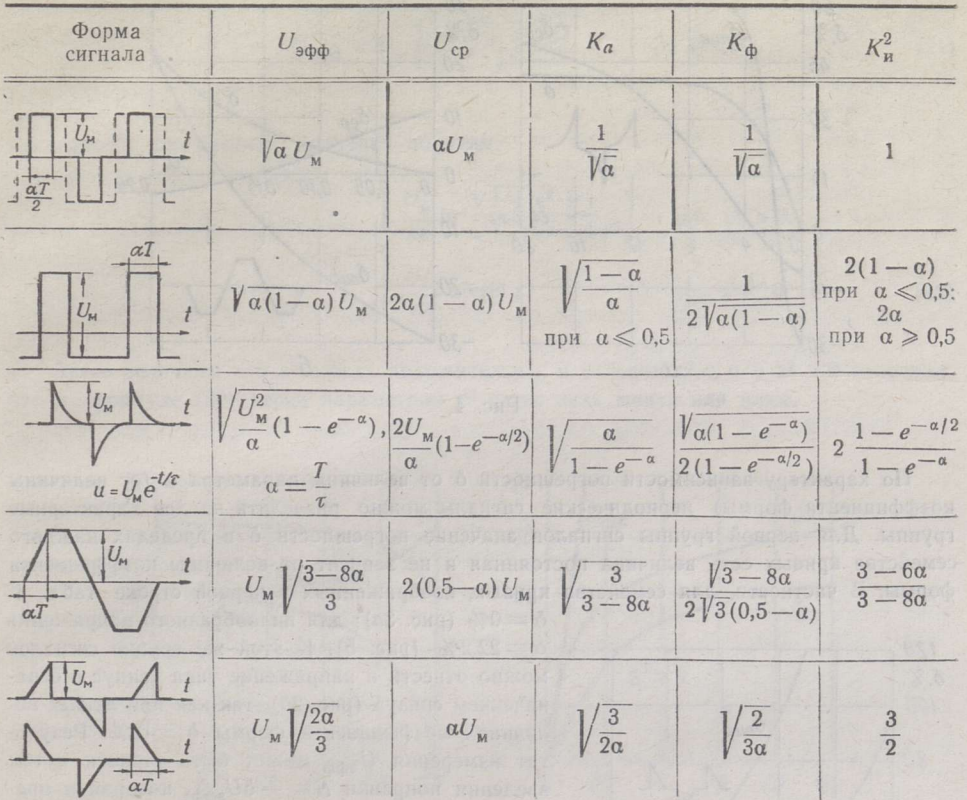 Форма сигнала | U_эфф | U_ср | K_a | K_ф | K_и²
U_м t αT/2 | √α U_м | αU_м | 1/√α | 1/√α | 1
αT U_м t | √(α(1—α)) U_м | 2α(1—α) U_м | √((1—α)/α) при α⩽0,5 | 1/(2√(α(1—α))) | 2(1—α) при α⩽0,5; 2α при α⩾0,5
U_м t u=U_м e^(-t/τ) | √(U_м²/α (1—e^(—α))), α=T/τ | 2U_м/α (1—e^(—α/2)) | √(α/(1—e^(—α))) | √(α(1—e^(—α)))/(2(1—e^(—α/2))) | 2 (1—e^(—α/2))/(1—e^(—α))
U_м t αT | U_м √((3—8α)/3) | 2(0,5—α) U_м | √(3/(3—8α)) | √(3—8α)/(2√3(0,5—α)) | (3—6α)/(3—8α)
U_м t t αT | U_м √(2α/3) | αU_м | √(3/2α) | √(2/3α) | 3/2